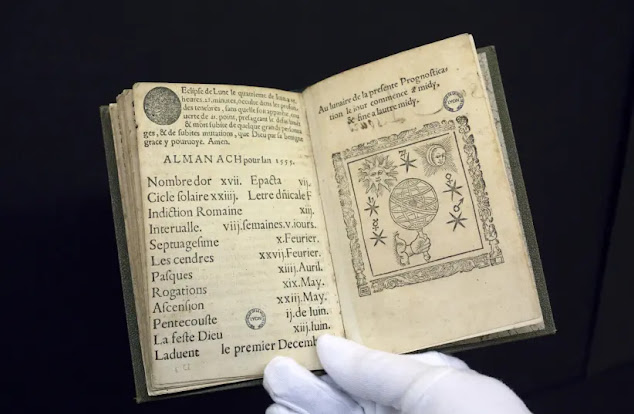 Eclipse de Lune le quatriesme de Iuin
heures, minutes, occulte dans les profun-
des tenebres, sans quelle soit apparue,
uerte de point, presageant le
& mort subite de quelque grands persona
ges, & de subites mutations, que Dieu par sa benigne
grace y pouruoye. Amen.
ALMANACH pour lan 1555.
Nombre dor xvij. Epacta vij.
Cicle solaire xxiiij. Letre dñicale F
Indiction Romaine xiij.
Interualle. viij. semaines. v. iours.
Septuagesime x. Feurier.
Les cendres xxvij. Feurier.
Pasques xiiij. Auril.
Rogations xix. May.
Ascension xxiij. May.
Pentecouste ij. de Iuin.
La feste Dieu xiij. Iuin.
Laduent le premier Decemb
Au lunaire de la presente Prognostica-
tion le iour commence a midy,
& fine a lautre midy.